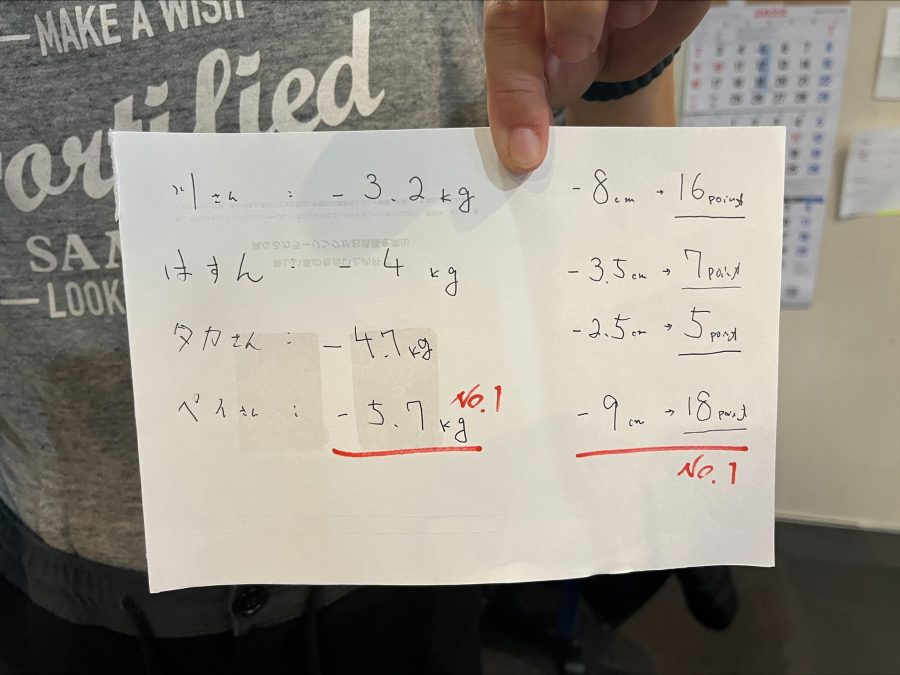 MAKE A WISH
ortified
SAN
LOOK
川さん : -3.2kg -8cm → 16point
はすん : -4kg -3.5cm → 7point
タカさん : -4.7kg -2.5cm → 5point
ペイさん : -5.7kg No.1 -9cm → 18point
No.1